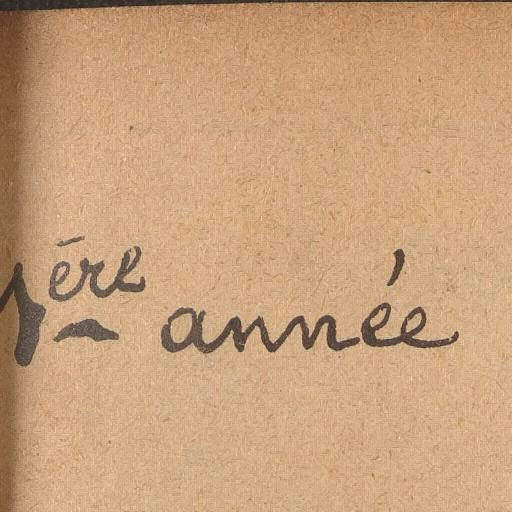 1ère année